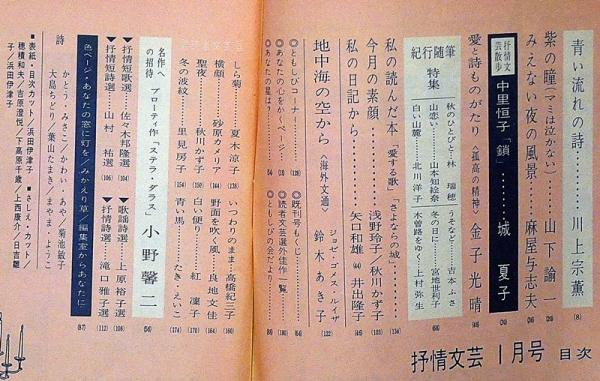 抒情文芸 1月号 目次
青い流れの詩……川上宗薫(8)
紫の瞳(マミは泣かない)……山下諭一(20)
みえない夜の風景……麻屋与志夫
抒情文芸散歩 中里恒子「鎖」……城夏子
愛と詩ものがたり<孤高の精神>金子光晴
紀行随筆特集
秋のひびと・林瑞穂
うそなど・吉本ふさ
山恋い・山本知絵奈
冬の日に・宮地世利子
白い山麓・北川洋子
木曽路をゆく・上村弥生
私の読んだ本<愛する歌「さよならの城」……(134)
今月の素顔……浅野玲子/秋川かず子(103)
私の日記から……矢口和雄(44) 井出隆子
地中海の空から<海外文通>ジョゼ・ゴメス・ルイザ 鈴木あき子(122)
◎ともしびコーナー
◎あなたの心をかくページ
◎あなたの星は?
◎既刊号もくじ
◎読者文芸選外佳作一覧
◎ともしびの会だより
読者文芸
しら菊/夏木涼子(128)
横顔/砂原カメリア(144)
聖夜/秋川かず子(164)
冬の波紋/里見房子
いつわりのまま/高橋紀三子(160)
野面を吹く風/良地文佳(164)
白い便り/紅凜子(170)
青い馬/たき・えいこ(174)
名作への招待 ブローティ作「ステラ・ダラス」小野馨二(56)
▼抒情短歌選 佐々木邦隆選(104)
▼抒情短詩選 山村祐選(106)
▼歌謡詩選 上原裕子選(108)
▼抒情詩選 滝口雅子選(112)
色ページ・あなたの窓に灯を/みかえり草/編集室からあなたに(97)
詩 かとう・みさこ/かわい・あや/菊池敏子
大島ちどり/葉山たまき/まやま・ようこ
■表紙・目次カット/浜田伊津子 ■さしえ・カット/
穂積和夫/吉原澄悦/下高原千歳/上西康介/日吉離
子/浜田伊津子